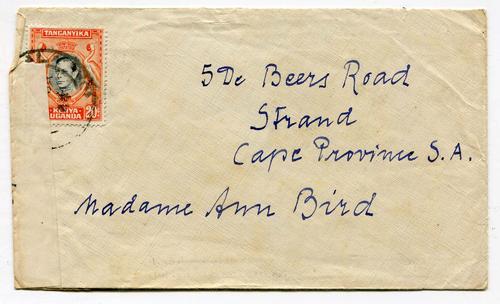 TANGANYIKA
KENYA
UGANDA
20
5 De Beers Road
Strand
Cape Province S.A.
Madame Ann Bird